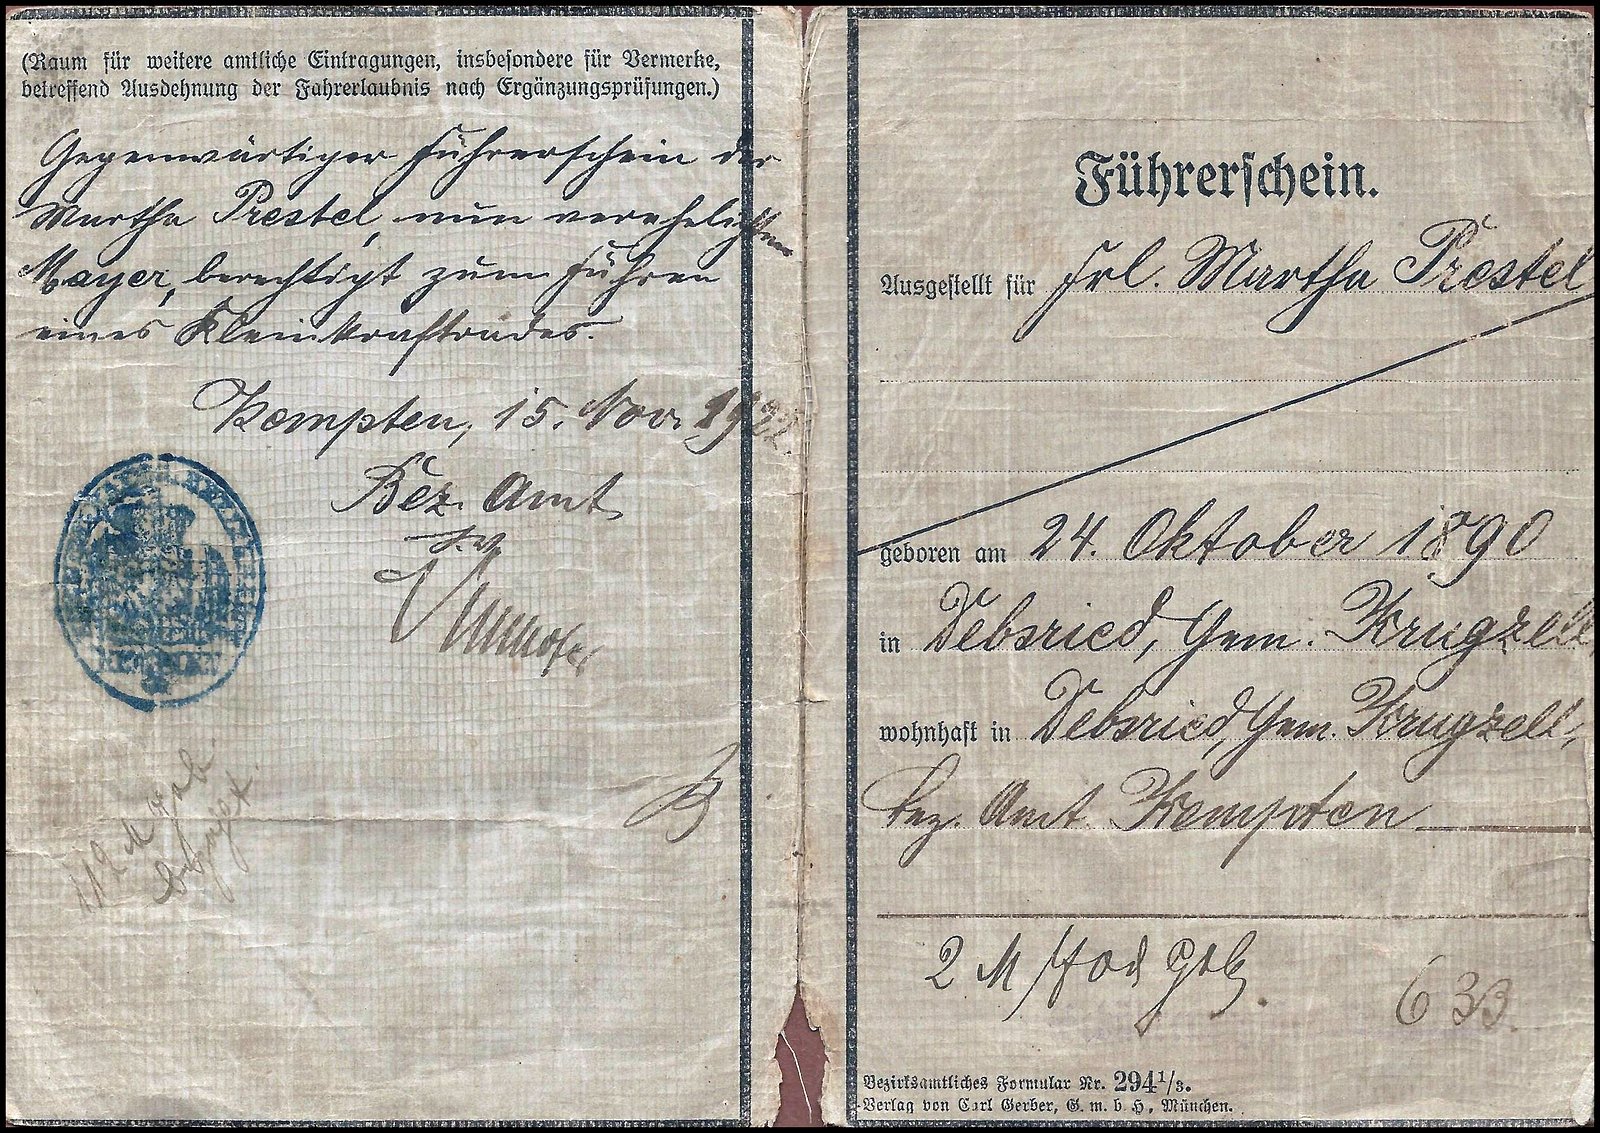 (Raum für weitere amtliche Eintragungen, insbesondere für Vermerke,
betreffend Ausdehnung der Fahrerlaubnis nach Ergänzungsprüfungen.)
Gegenwärtiger Führerschein der
Martha Prestel, nun verehelichten
Mayer, berechtigt zum Führen
eines Kleinkraftrades.
Kempten, 15. Nov. 192
Bez. Amt
KEMPTEN
Führerschein.
Ausgestellt für Frl. Martha Prestel
geboren am 24. Oktober 1890
in Debsried, Gem. Krugzell,
wohnhaft in Debsried, Gem. Krugzell,
bez. Amt Kempten
2 M
633.
Bezirksamtliches Formular Nr. 294 1/3.
Verlag von Carl Gerber, G. m. b. H., München.